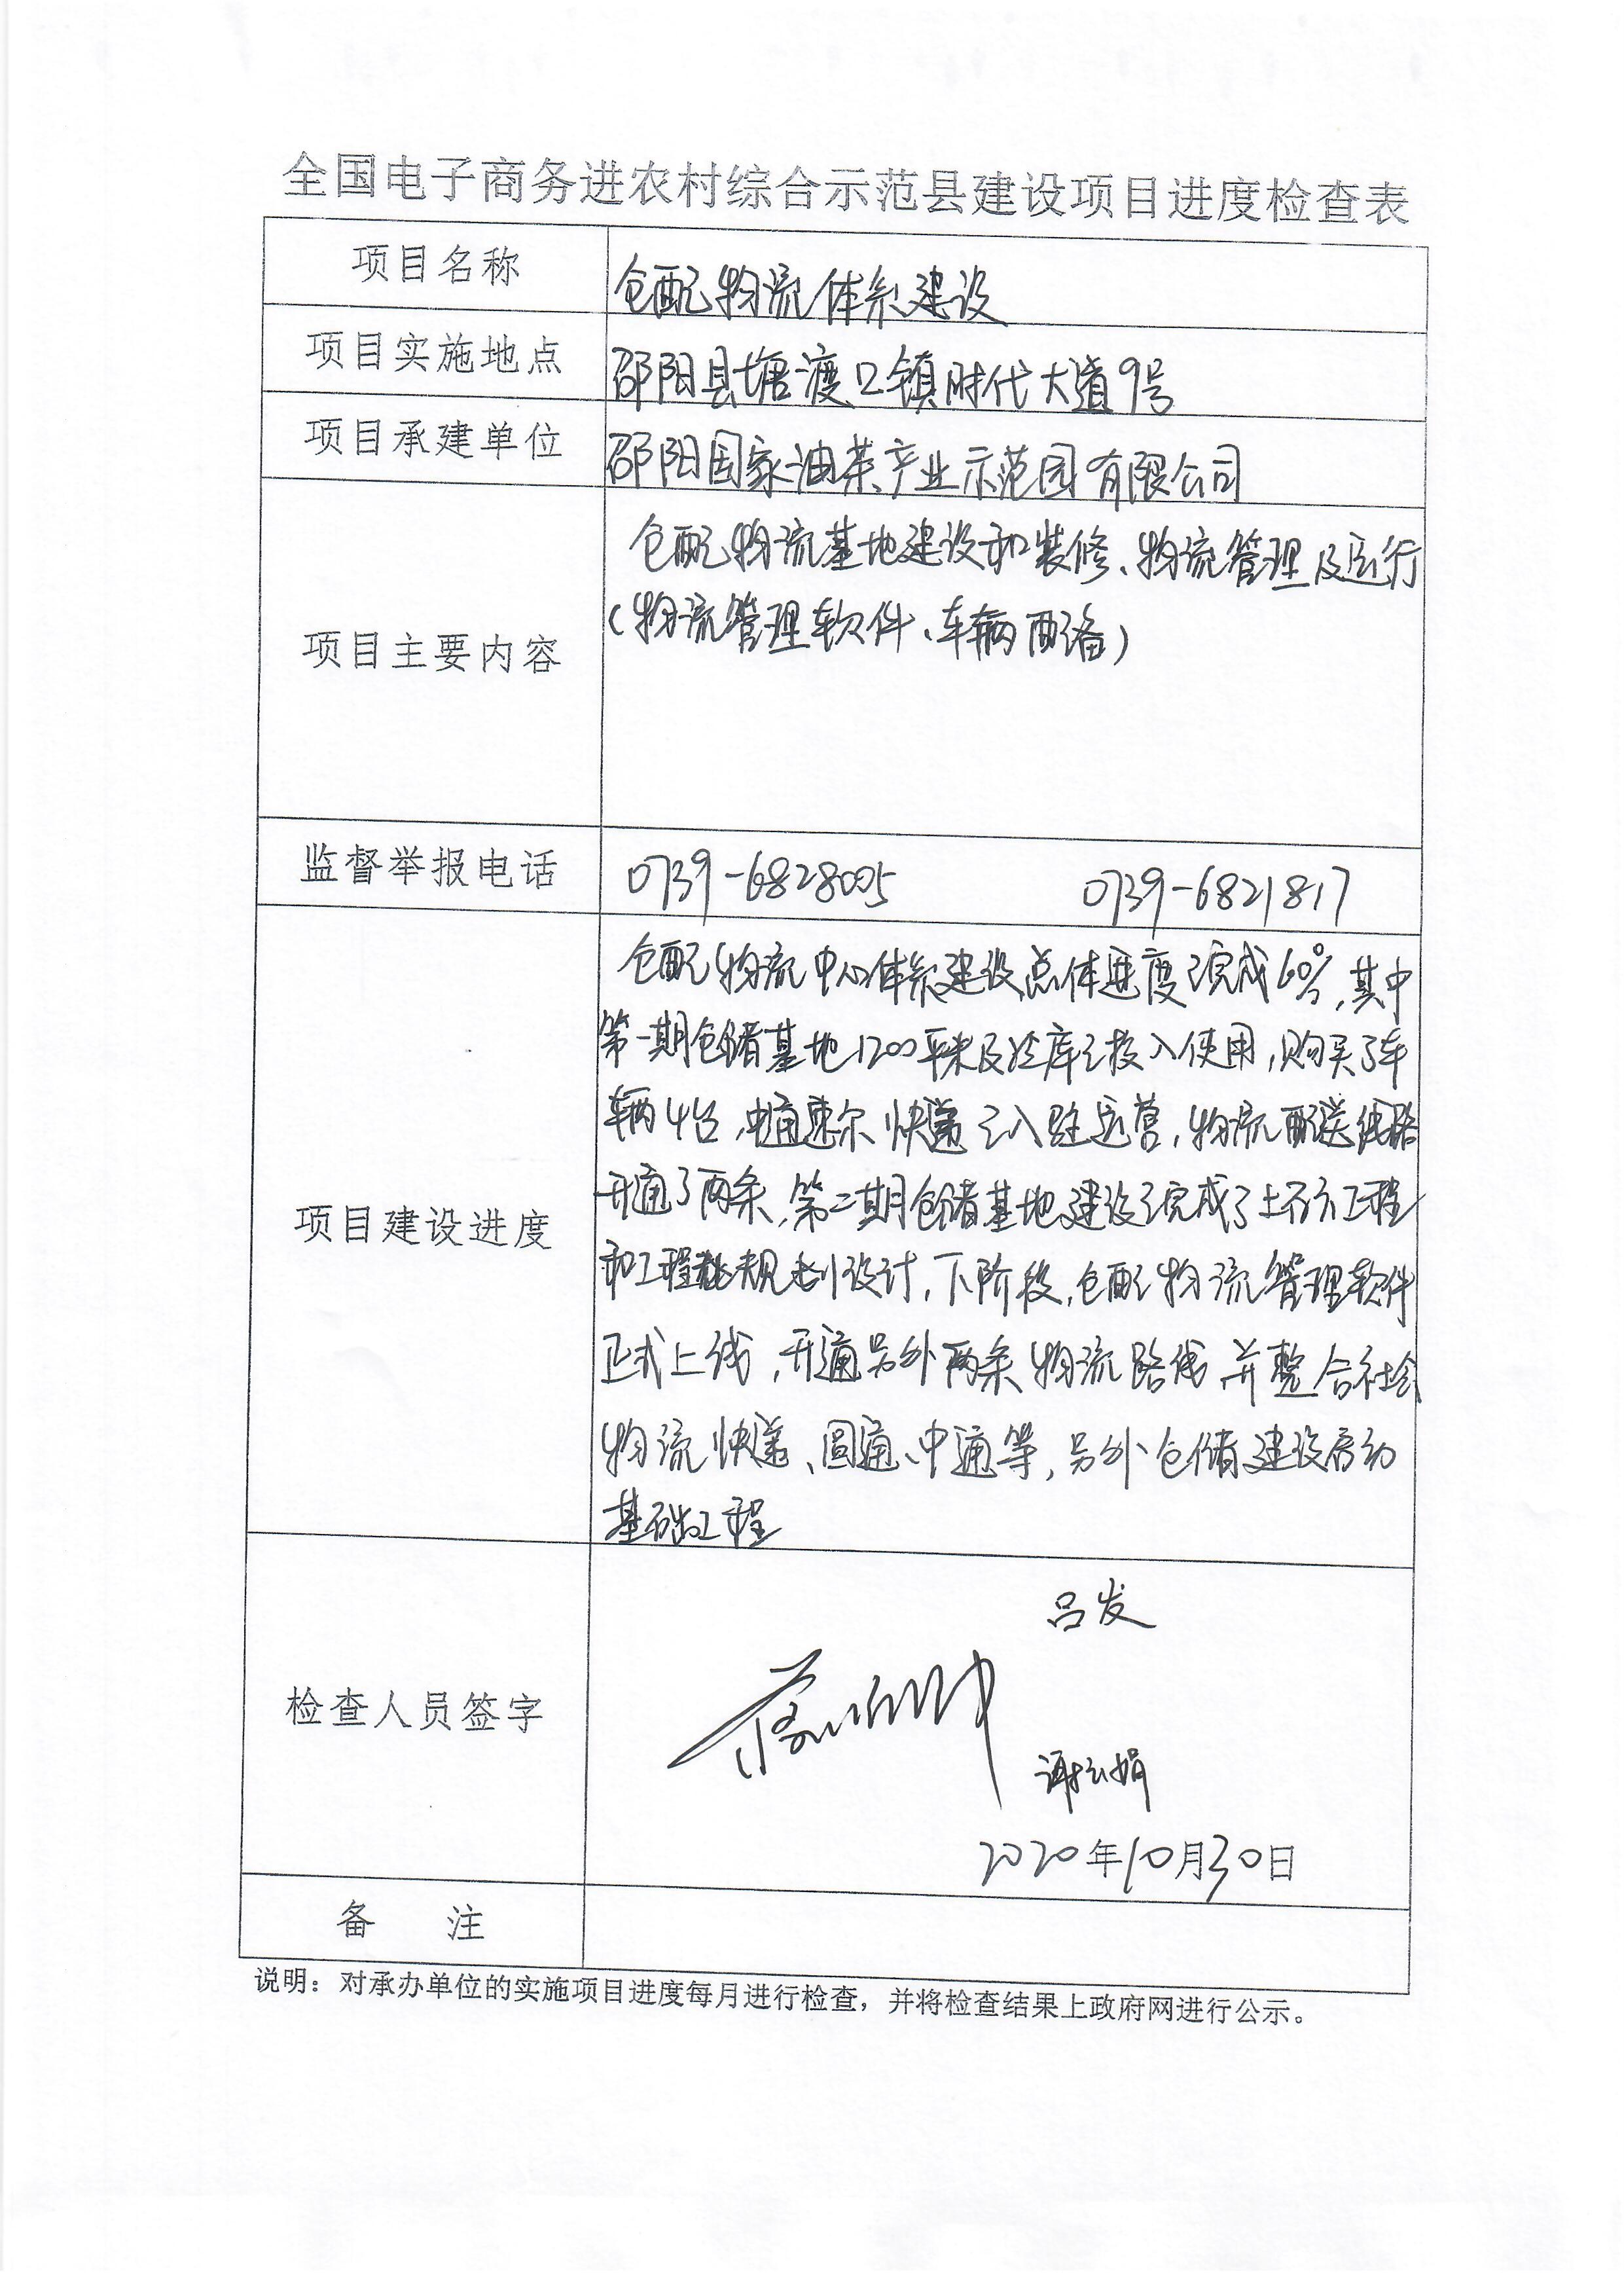 全国电子商务进农村综合示范县建设项目进度检查表
项目名称
仓配物流体系建设
项目实施地点
邵阳县塘渡口镇时代大道9号
项目承建单位
邵阳国家油茶产业示范园有限公司
项目主要内容
仓配物流基地建设和装修、物流管理及运行
(物流管理软件、车辆配备)
监督举报电话
0739-6828005 0739-6821817
项目建设进度
仓配物流中心体系建设总体进度已完成60%,其中
第一期仓储基地1200平米及冷库已投入使用,购买了车
辆4台,中通速尔快递已入驻运营,物流配送线路
开通了两条,第二期仓储基地建设已完成了土石方工程
和工程规划设计,下阶段,仓配物流管理软件
正式上线,开通另外两条物流路线,并整合社会
物流快递、圆通、中通等,另外仓储建设启动
基础工程
检查人员签字
吕发
2020年10月30日
备 注
说明:对承办单位的实施项目进度每月进行检查,并将检查结果上政府网进行公示。